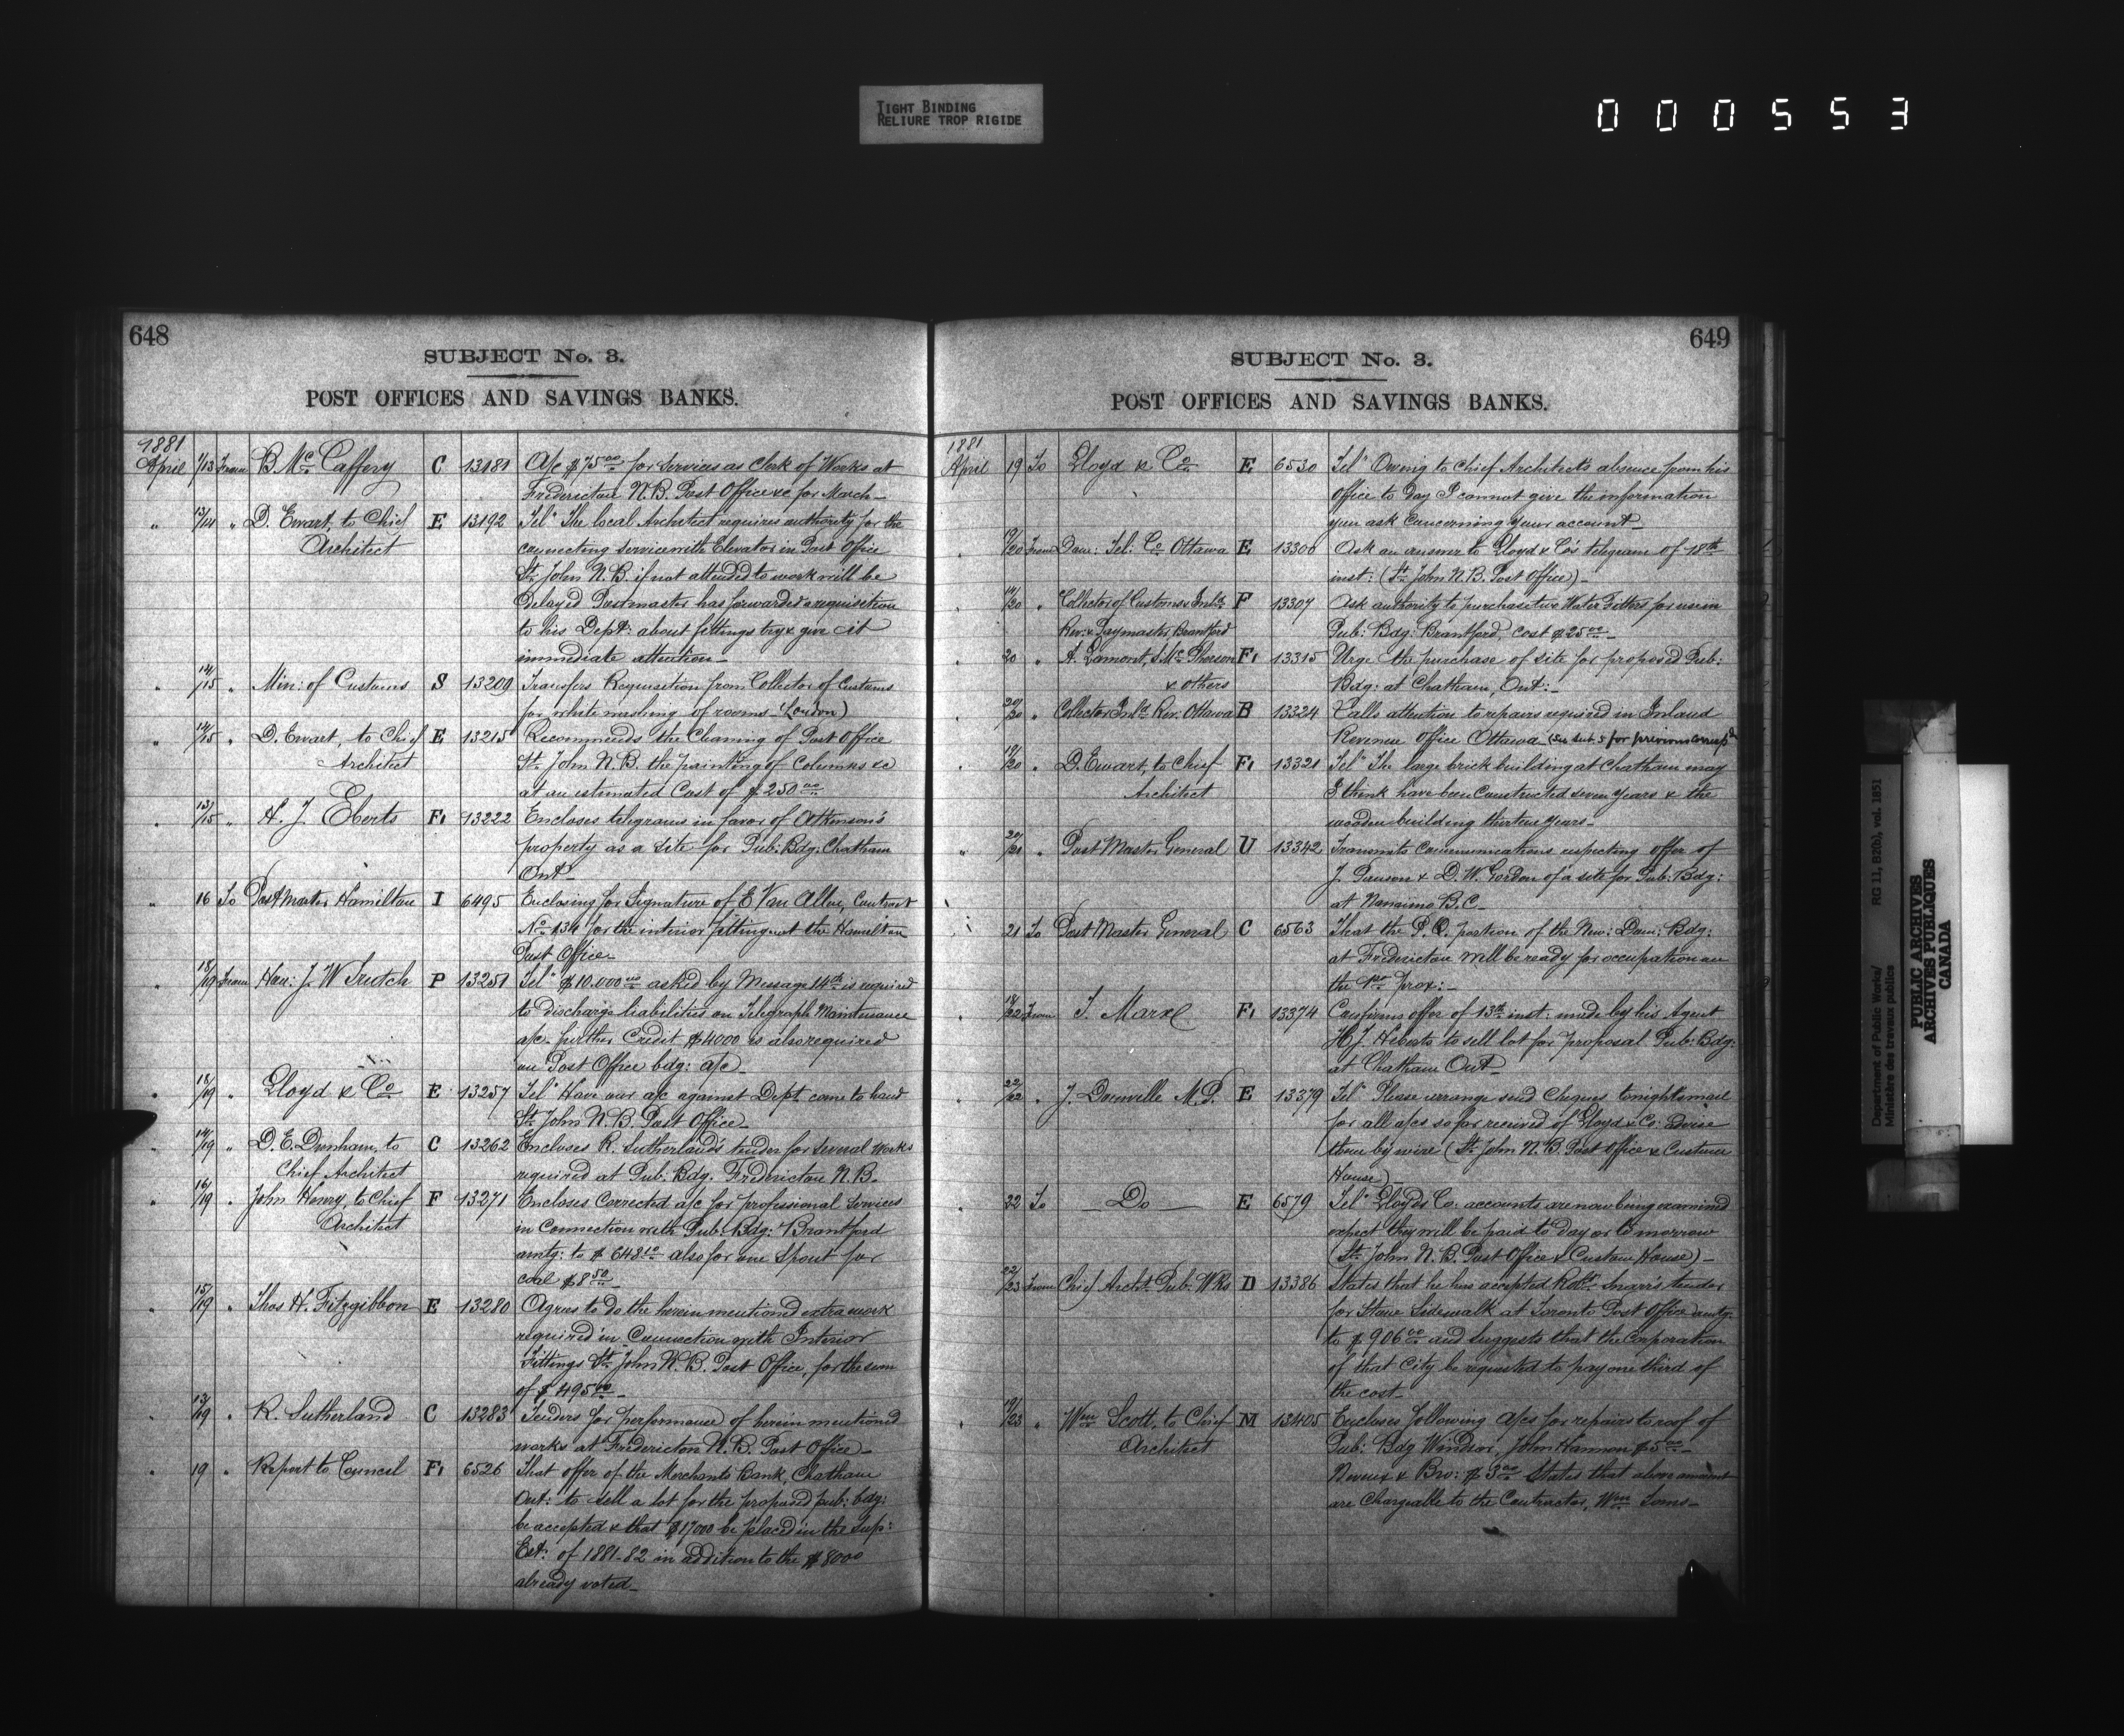 TIGHT BINDING
RELIURE TROP RIGIDE
000553
648
SUBJECT No. 3.
POST OFFICES AND SAVINGS BANKS.
1881
April 1/13 From B. McCaffery C 13181 A/c $75.00 for services as Clerk of Works at
Fredericton N.B. Post Office &c for March_
" 13/14 " D. Ewart, to Chief E 13192 Tel^m The local Architect requires authority for the
Architect connecting service with Elevator in Post Office
St. John N.B. if not attended to work will be
delayed Postmaster has forwarded a requisition
to his Dept: about fittings try & give it
immediate attention_
" 14/15 " Min: of Customs S 13209 Transfers Requisition from Collector of Customs
for white washing of rooms (London)
" 14/15 " D. Ewart, to Chief E 13215 Recommends the Cleaning of Post Office
Architect St. John N.B. the painting of Columns &c
at an estimated Cost of $250.00
" 13/15 " H. J. Eberts F1 13222 Encloses telegrams in favor of Atkinson's
property as a site for Pub: Bdg: Chatham
Ont_
" 16 To Post Master Hamilton I 6495 Enclosing for Signature of E Van Allen, Contract
No 134 for the interior fittings at the Hamilton
Post Office_
" 18/19 From Hon: J. W Trutch P 13251 Tel^m $10.000.00 asked by Message 14th is required
to discharge liabilities on Telegraph Maintenance
a/c_ further Credit $4000 is also required
on Post Office bdg: a/c_
" 18/19 " Lloyd & Co E 13257 Tel^m Have our a/c against Dept. come to hand
St. John N.B. Post Office_
" 14/19 " D. E. Dunham, to C 13262 Encloses R. Sutherland's tender for several works
Chief Architect required at Pub: Bdg. Fredericton N.B.
" 16/19 " John Henry, to Chief F 13271 Encloses Corrected a/c for professional services
Architect in Connection with Pub: Bdg: Brantford
amtg: to $648.10 also for one Spout for
coal $8.50
" 15/19 " Thos H. Fitzgibbon E 13280 Agrees to do the herein mentioned extra work
required in Connection with Interior
Fittings St. John N.B. Post Office, for the sum
of $495.00_
" 13/19 " R. Sutherland C 13283 Tenders for performance of herein mentioned
works at Fredericton N.B. Post Office_
" 19 " Report to Council F1 6526 That offer of the Merchants Bank, Chatham
Ont: to sell a lot for the proposed pub: bdg:
be accepted & that $17000 be placed in the Sup:
Est: of 1881-82 in addition to the $8000
already voted_
649
SUBJECT No. 3.
POST OFFICES AND SAVINGS BANKS.
1881
April 19 To Lloyd & Co E 6530 Tel^m Owing to Chief Architect's absence from his
Office to day I cannot give the information
you ask Concerning your account_
" 19/20 From Dom: Tel: Co Ottawa E 13300 Ask an answer to Lloyd & Co's telegram of 18th
inst: (St. John N.B. Post Office)_
" 19/20 " Collector of Customs Inld F 13307 Ask authority to purchase two Water Filters for use in
Rev: & Paymaster, Brantford Pub: Bdg: Brantford, cost $25.00_
" 20 " A. Lamont, S. McPherson F1 13315 Urge the purchase of site for proposed Pub:
& others Bdg: at Chatham, Ont:_
20/20 " Collector Inld Rev: Ottawa B 13324 Calls attention to repairs required in Inland
Revenue office Ottawa (See Sub. 5 for previous corresp^d
" 19/20 " D. Ewart, to Chief F1 13321 Tel^m The large brick building at Chatham may
Architect I think have been Constructed seven years & the
wooden building thirteen years_
" 20/21 " Post Master General U 13342 Transmits Communications respecting offer of
J. Pawson & D. W. Gordon of a site for Pub: Bdg:
at Nanaimo B.C_
21 To Post Master General C 6563 That the P.O. portion of the New: Dom: Bdg:
at Fredericton will be ready for occupation on
the 1st Prox:_
" 18/22 From T. Marx F1 13374 Confirms offer of 13th inst: made by his Agent
H. J. Heberts to sell lot for proposal Pub: Bdg:
at Chatham Ont_
" 22/22 " J. Domville M.P. E 13379 Tel^m Please arrange send Cheques tonights mail
for all a/cs so far received of Lloyd & Co: advise
them by wire (St. John N.B. Post Office & Custom
House)_
" 22 To _Do_ E 6579 Tel^m Lloyds Co: accounts are now being examined
expect they will be paid to day or to morrow
(St. John N.B. Post Office & Custom House)_
" 22/23 From Chief Archt. Pub: Wks D 13386 States that he has accepted Robt. Snarr's tender
for Stone Sidewalk at Toronto Post Office amtg.
to $906.00 and suggests that the Corporation
of that City be requested to pay one third of
the cost_
" 19/23 " Wm Scott, to Chief M 13405 Encloses following a/cs for repairs to roof of
Architect Pub: Bdg Windsor, John Hannon $5.00_
& Bro: $3.00 States that above amount
are Chargeable to the Contractor, Wm
Department of Public Works/ RG 11, B2(b), vol. 1851
Ministère des travaux publics
PUBLIC ARCHIVES
ARCHIVES PUBLIQUES
CANADA